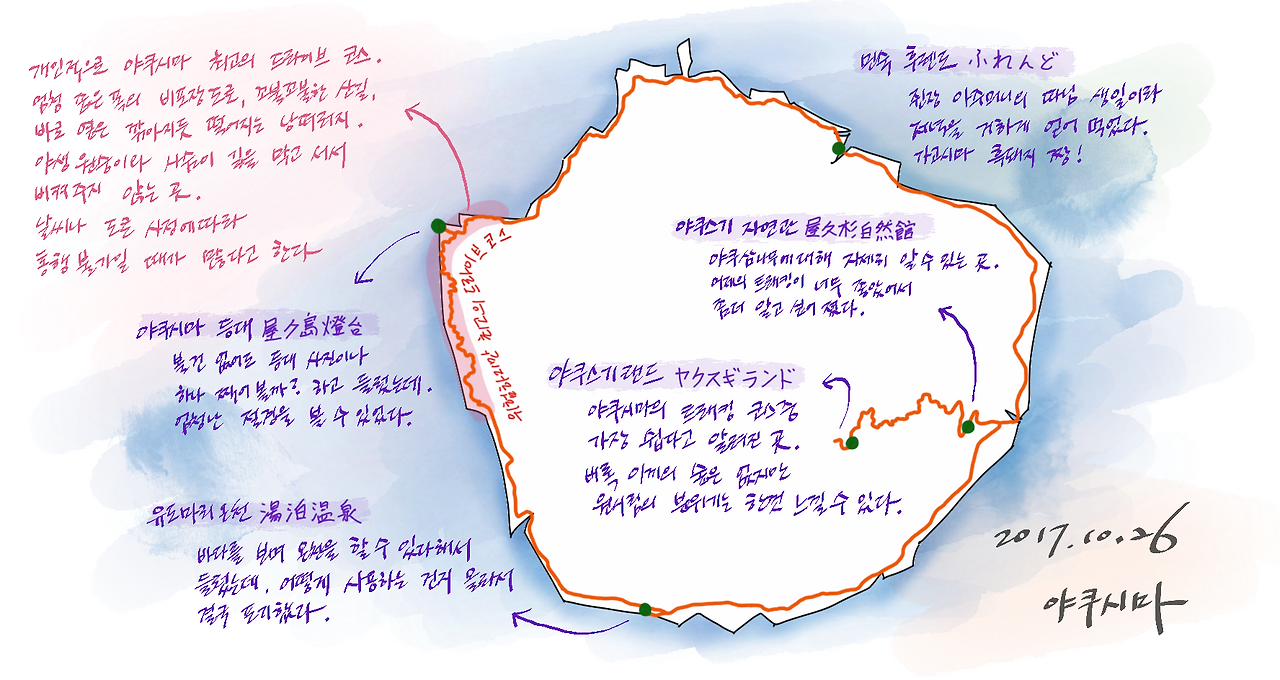 개인적으로 야쿠시마 최고의 드라이브 코스.
엄청 좁은 폭의 비포장도로, 꼬불꼬불한 산길,
바로 옆은 깎아지듯 떨어지는 낭떠러지.
야생 원숭이랑 사슴이 길을 막고 서서
비켜주지 않는 곳.
날씨나 도로 사정에 따라
통행 불가일 때가 많다고 한다
민숙 후렌도 ふれんど
쥔장 아주머니의 따님 생일이라
저녁을 거하게 얻어 먹었다.
가고시마 흑돼지 짱!
야쿠스기 자연관 屋久杉自然館
야쿠삼나무에 대해 자세히 알 수 있는 곳.
어제의 트래킹이 너무 좋았어서
좀더 알고 싶어 졌다.
야쿠시마 등대 屋久島燈台
볼건 없어도 등대 사진이나
하나 찍어볼까? 하고 들렀는데.
엄청난 절경을 볼 수 있었다.
드라이브 코스
야쿠스기랜드 ヤクスギランド
야쿠시마의 트래킹 코스중
가장 쉽다고 알려진 곳.
비록 이끼의 숲은 없지만
원시림의 분위기는 한껏 느낄 수 있다.
유도마리 온천 湯泊温泉
바다를 보며 온천을 할 수 있다해서
들렀는데, 어떻게 사용하는 건지 몰라서
결국 포기했다.
2017.10.26
야쿠시마